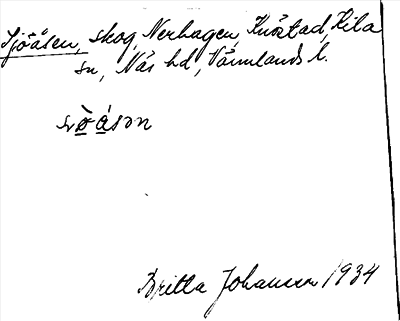 Sjöåsen, skog, Nerhagen, Knöstad, Kila
sn, Näs hd, Värmlands l.
Britta Johansson 1934